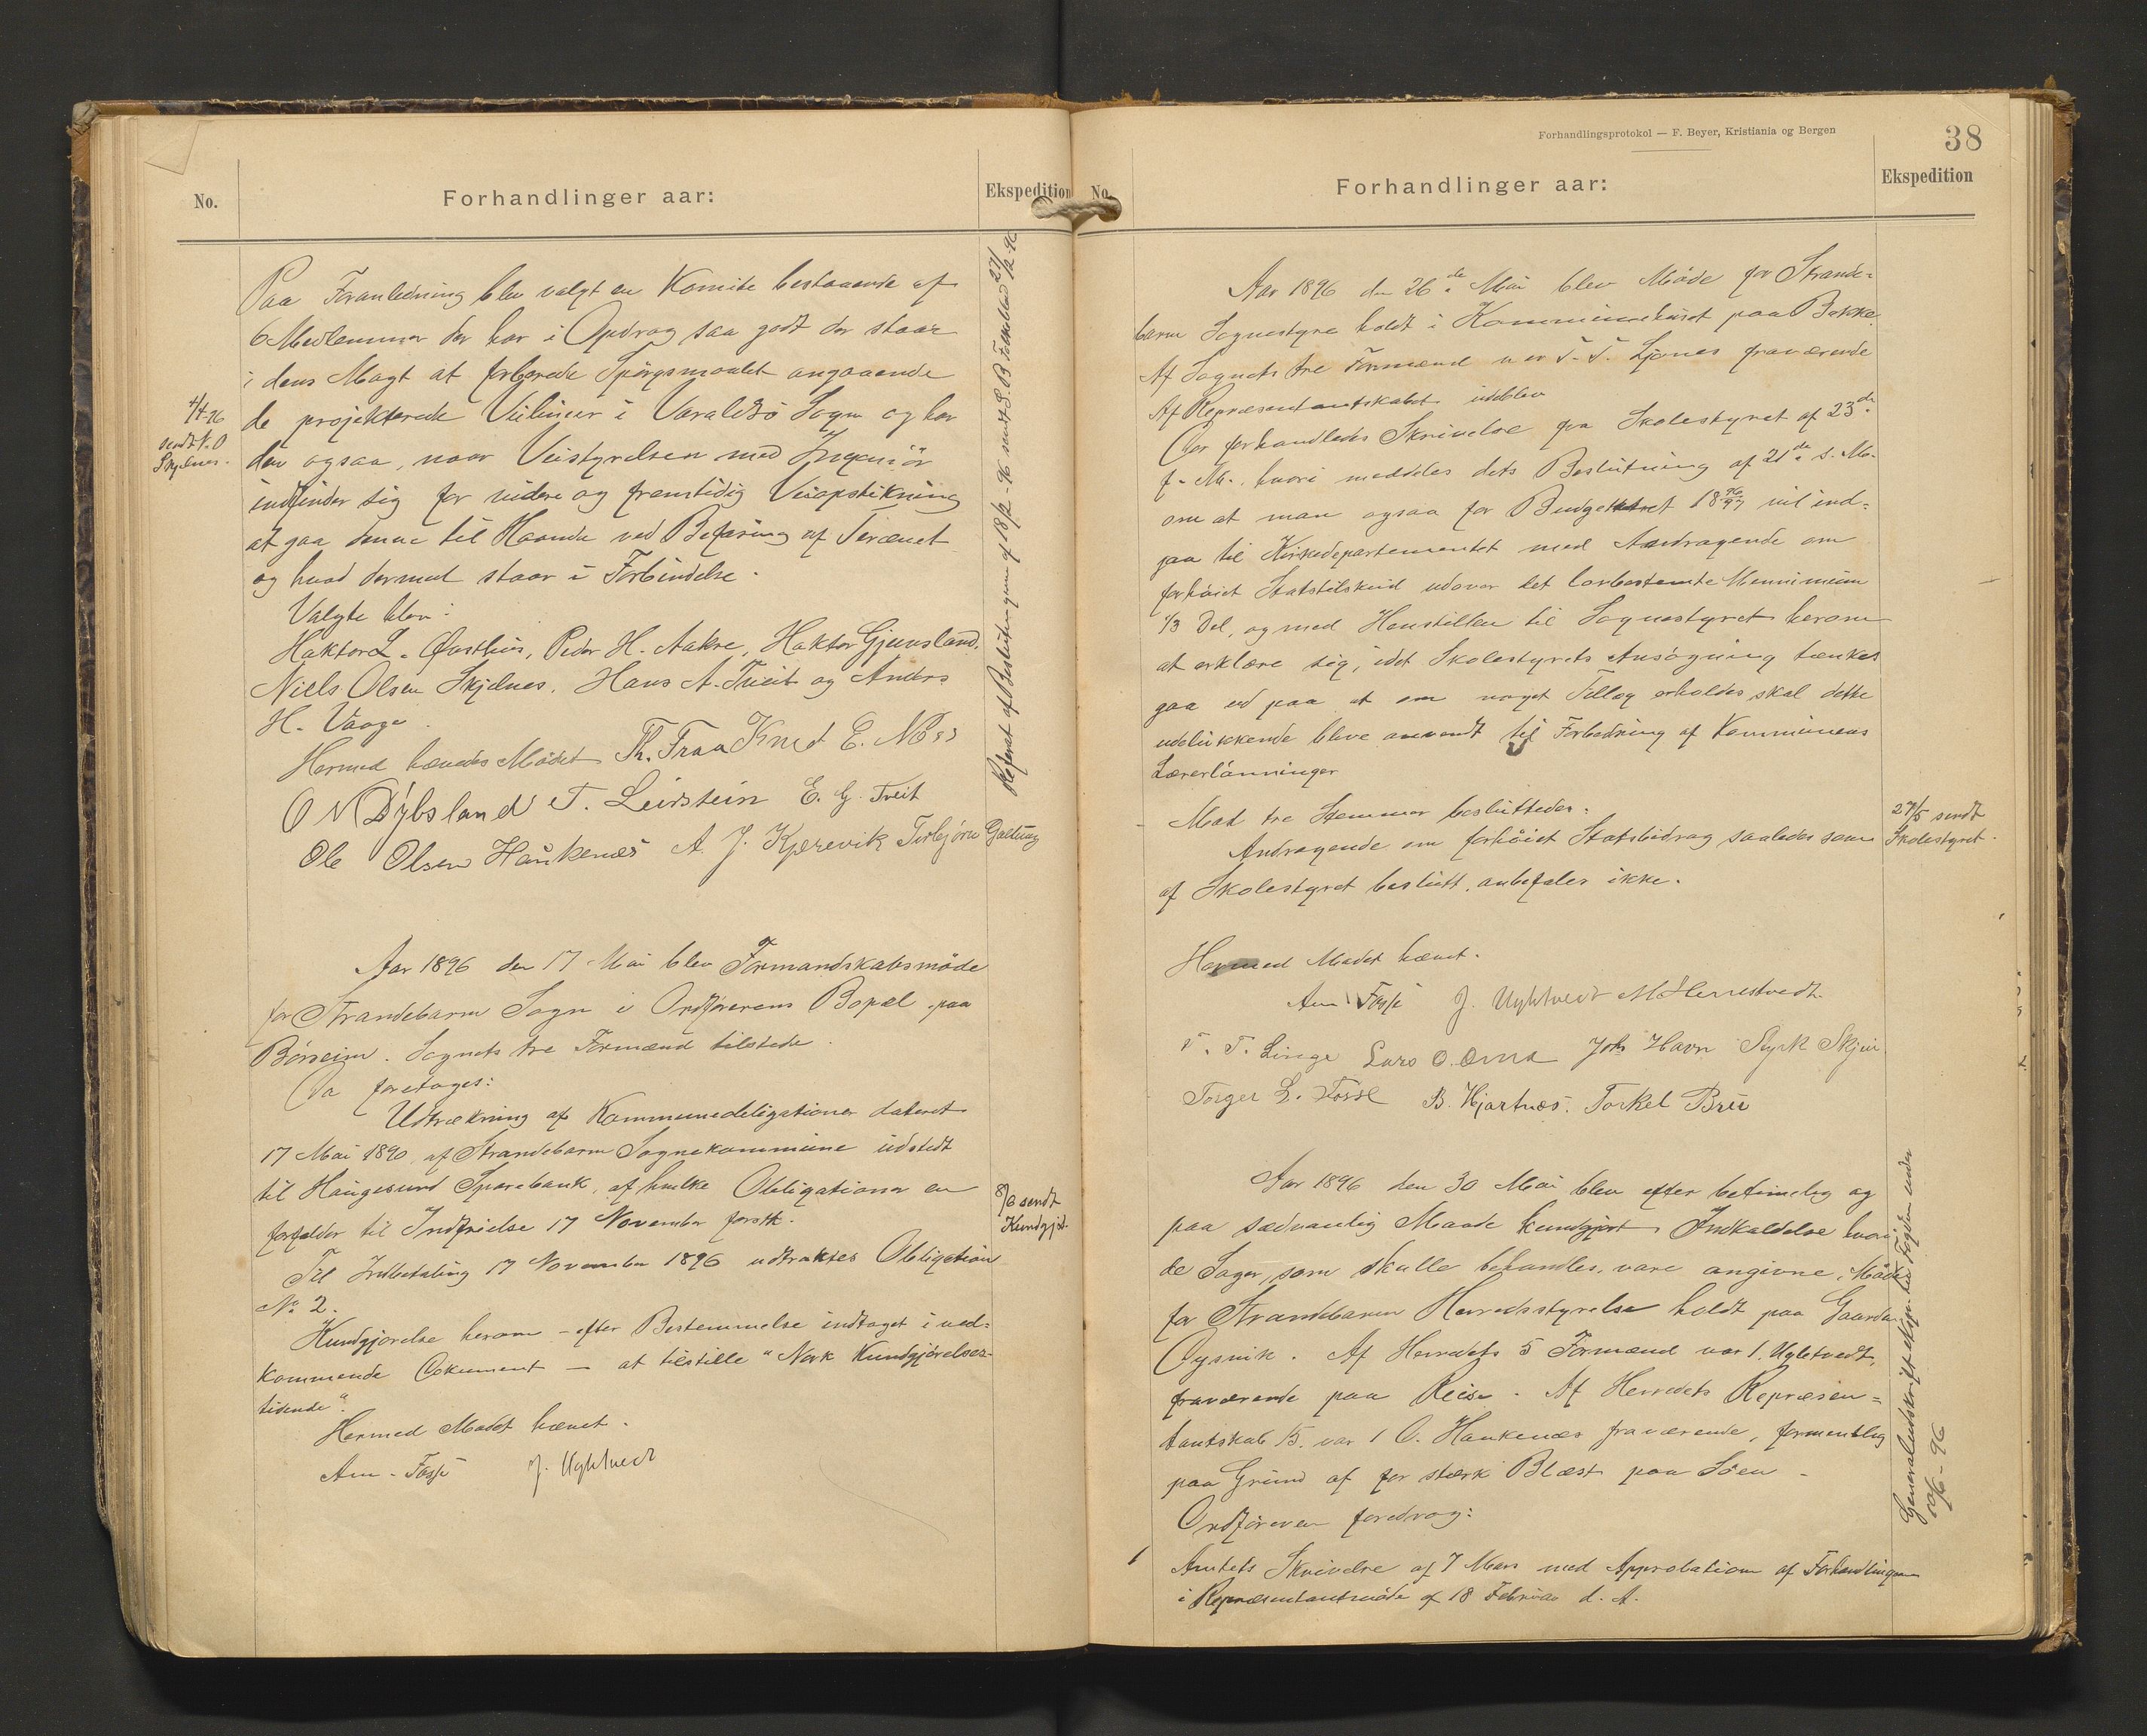 No.
Forhandlinger aar:
Ekspedition
Paa Foranledning blev valgt en Komite bestaaende af
6 Medlemmer der har i Opdrag saa godt der staar
i dens Magt at forberede Spörgsmaalet angaaende
de projekterede Veilinier i Varaldsö Sogn og har
den ogsaa, naar Veistyrelsen med Ingeniör
indfinder sig for videre og fremtidig Veiopstikning
at gaa denne til Haande ved Befaring af Terænet
og hvad dermed staar i Forbindelse.
Valgte blev:
Haktor L. Østhus, Peder H. Aakre, Haktor Gjeusland,
Niels Olsen Skjelnes, Hans A. Tveit og Anders
H. Vaage.
Hermed hævedes Mödet Th. Traa Knud E. Næss
O N Dybsland T. Leirstein E. G. Tveit
Ole Olsen Haukenæs A. J. Kjærevik Torbjörn Galtung
4/4-96
sendt N. O
Skjelnes.
Referat af Beslutningen af 18/2-96 sendt S. B. Folkeblad 27/2-96
Aar 1896 den 17 Mai blev Formandskabsmöde
for Strandebarm Sogn i Ordförerens Bopæl paa
Börseim. Sognets tre Formænd tilstede.
Da foretoges:
Udtrækning af Kommuneobligationer dateret
17 Mai 1890, af Strandebarm Sognekommune udstedt
til Haugesund Sparebank, af hvilke Obligationer en
forfalder til Indfrielse 17 November förstk.
Til Indbetaling 17 November 1896 udtraktes Obligation
No 2.
Kundgjorelse herom – efter Bestemmelse indtaget i ved-
kommende Dokument – at tilstille "Norsk Kundgjörelses-
tidende".
Hermed Mödet hævet.
Am. Fosse J. Ugletvedt
8/6 sendt
Kundgjt.
Forhandlingsprotokol — F. Beyer, Kristiania og Bergen
38
No.
Forhandlinger aar:
Ekspedition
Aar 1896 den 26de Mai blev Möde for Strande-
barm Sognestyre holdt i Kommunehuset paa Bakke
Af Sognets tre Formænd var T. T. Ljones fraværende
Af Repræsentantskabet udeblev
Der forhandledes Skrivelse fra Skolestyret af 23de
f. M., hvori meddeles dets Beslutning af 21de s. M.
om at man ogsaa for Budgetaaret 1896/97 vil ind-
gaa til Kirkedepartementet med Andragende om
forhöiet Statstilskud udover det lovbestemte Menimium
1/3 Del, og med Henstillen til Sognestyret herom
at erklære sig, idet Skolestyrets Ansögning tænkes
gaa ud paa at om noget Tillæg erholdes skal dette
udelukkende blive anvendt til Forbedring af Kommunens
Lærerlönninger
Mod tre Stemmer besluttedes:
Andragende om forhöiet Statsbidrag saaledes som
af Skolestyret beslutt. anbefales ikke.
27/5 sendt
Skolestyret.
Hermed Mödet hævet.
Am Fosse J. Ugletvedt M Herrestvedt
T. T. Linge Lars O. Oma Joh Havn Styrk Skjei
Torger L. Fosse B. Hjartnæs. Torkel Bru
Aar 1896 den 30 Mai blev efter betimelig og
paa sædvanlig Maade kundgjort Indkaldelse hvori
de Sager, som skulle behandles, vare angivne, Möde
for Strandebarm Herredsstyrelse holdt paa Gaarden
Oysvik. Af Herredets 5 Formænd var 1. Ugletvedt,
fraværende paa Reise. Af Herredets Repræsen-
tantskab 15. var 1 O. Haukenæs fraværende, formentlig
paa Grund af for stærk Blæst paa Söen.
Ordföreren foredrog:
1
Amtets Skrivelse af 7 Mars med Approbation af Forhandlingerne
i Repræsentantmöde af 18 Februar d. A.
Generaludskrift exp. til Fogden under
10/6-96